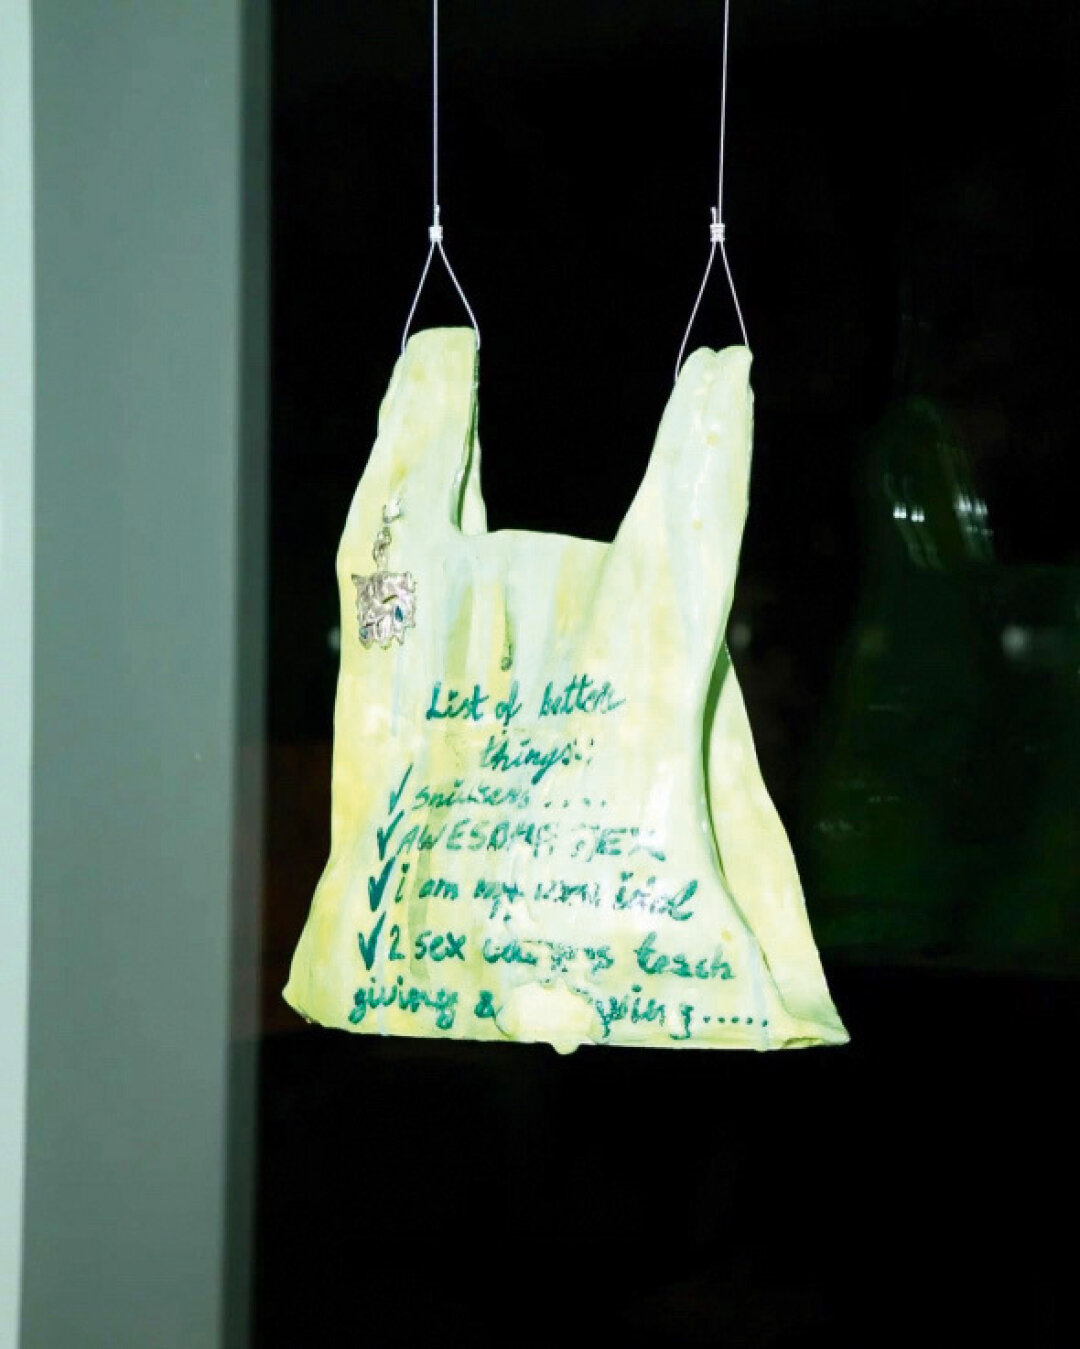 List of better
things:
✓ snickers....
✓ AWESOME SEX
✓ i am my own
✓ 2 sex teach
giving &